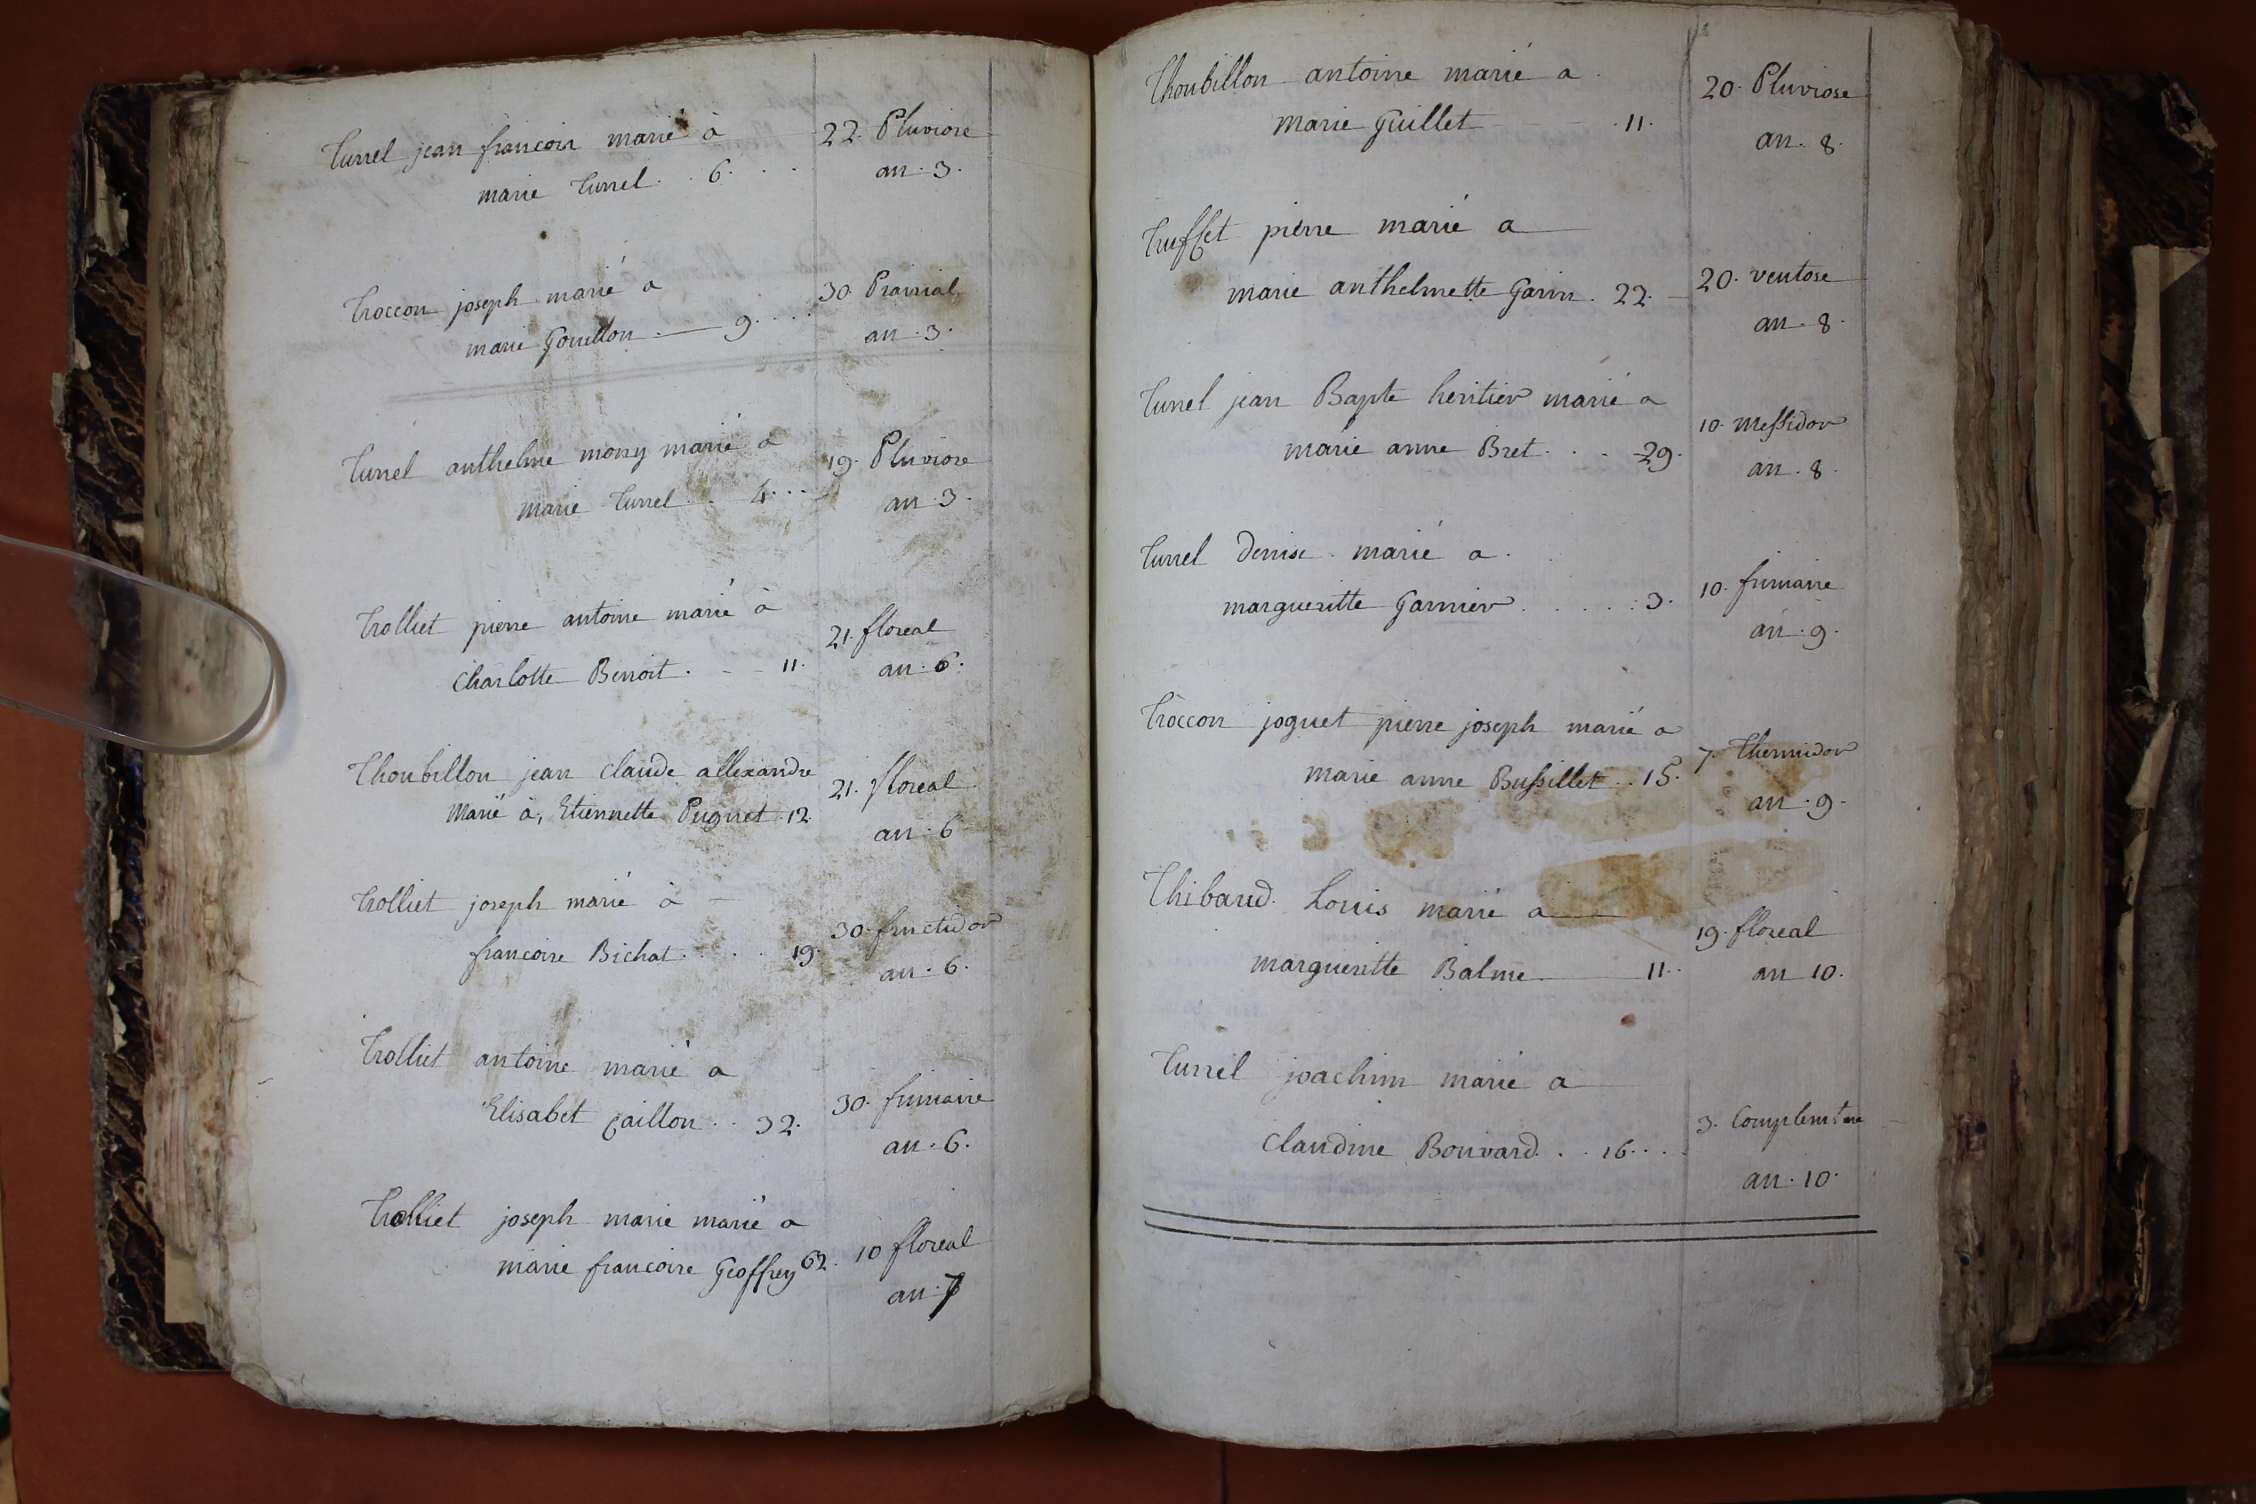 Turrel jean francois marié à 22. Pluviose
marie Turrel . . 6 . . . an . 3.
Troccon joseph marié a 30. Prairial
marie Gouillon 9 . . . . an . 3.
Turrel anthelme mory marié a 19. Pluviose
marie Turrel . . 4 . . . an . 3.
Trolliet pierre antoine marié à 21. floreal
charlotte Benoit . 11. an . 6.
Thoubillon jean claude allexandre 21. floreal
Marié à, Etiennette Pugnet . 12. an . 6
Trolliet joseph marié à 30. fructidor
francoise Bichat . . . . 19. an . 6.
Trolliet antoine marié a 30. frimaire
Elisabet Caillon . . 32. an . 6.
Trolliet joseph marie marié a 10 floreal
marie francoise Geoffrey 62. an . 7
Thoubillon antoine marié a . 20. Pluviose
marie Guillet . 11. an . 8.
Truffet pierre marié a
marie anthelmette Garin . 22. 20. ventose
an . 8.
Turrel jean Bapte heritier marié a 10. Messidor
marie anne Bret . . . 29. an . 8.
Turrel denise . marié a . 10. frimaire
margueritte Garnier . . . . . 3. an . 9.
Troccon joguet pierre joseph marié a 7. Thermidor
marie anne Bussillet . . 15. an . 9.
Thibaud . Louis marié a 19. floreal
margueritte Balme 11. an 10.
Turrel joachim marié a
3. Complemtre
Claudine Bouvard . . . 16 . . . .
an . 10.